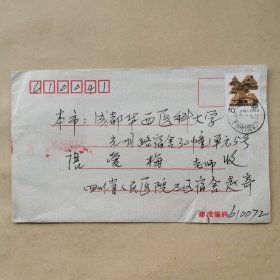 610041
本市：成都华西医科大学
光明路宿舍30幢1单元5号
梅 老师 收
四川省人民医院三区宿舍赵寄
邮政编码610072